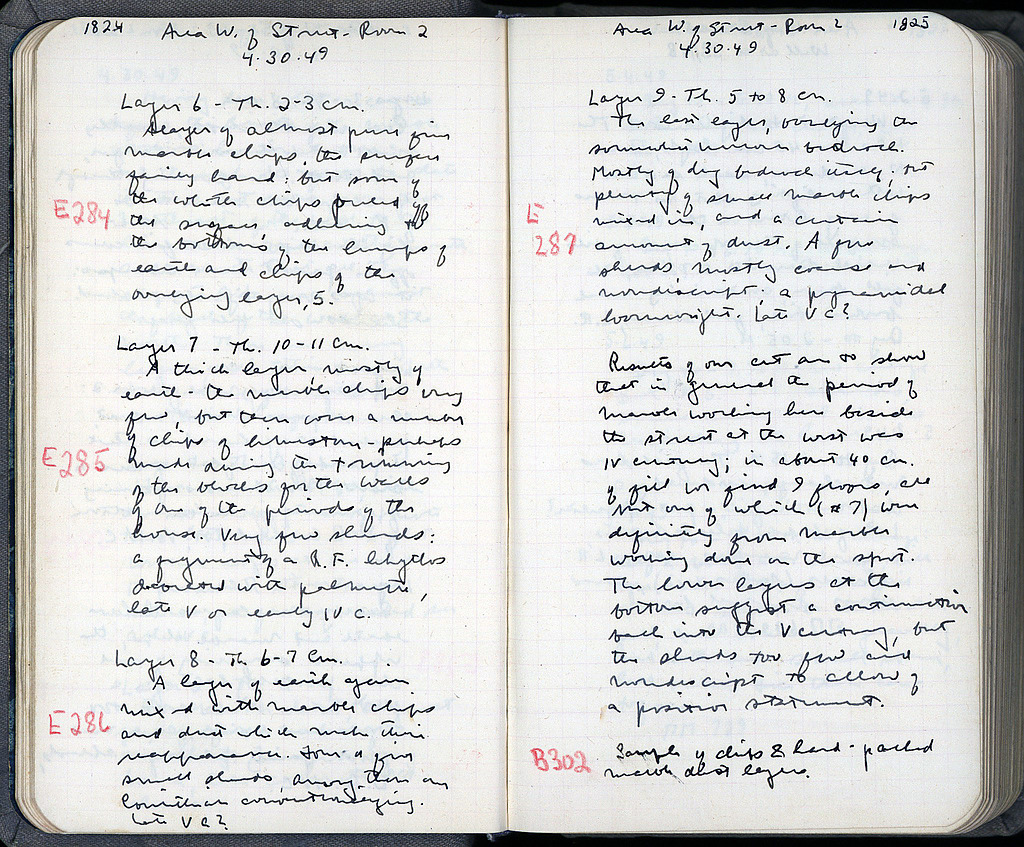 1824 Area W. of Street - Room 2
4.30.49
Layer 6 - Th. 2-3 cm.
A layer of almost pure fine
marble chips, the surface
fairly hard; but some of
the white chips peeled off
E284
the surface, adhering to
the bottoms of the lumps of
earth and chips of the
overlying layer, 5.
Layer 7 - Th. 10-11 cm.
A thick layer mostly of
earth - the marble chips very
few, but there were a number
of chips of limestone - perhaps
E285
made during the trimming
of the blocks for the walls
of one of the periods of the
house. Very few sherds:
a fragment of a R.F. lekythos
decorated with palmette,
late V or early IV c.
Layer 8 - Th 6-7 cm.
A layer of earth again
mixed with marble chips
E286
and dust which make their
reappearance. Some few
small sherds, among them one
Corinthian conventionalizing.
Late V c?
Area W. of Street - Room 2 1825
4.30.49
Layer 9 - Th. 5 to 8 cm.
The last layer, overlying the
somewhat uneven bedrock.
Mostly of dug bedrock itself, but
plenty of small marble chips
E
287
mixed in, and a certain
amount of dust. A few
sherds mostly coarse and
nondiscript; a pyramidal
loomweight. Late V c?
Results of our cut are to show
that in general the period of
marble working here beside
the street at the west was
IV century; in about 40 cm.
of fill we find 9 floors, all
but one of which (#7) were
definitely from marble
working done on the spot.
The lower layers at the
bottom suggest a continuation
back into the V century, but
the sherds too few and
nondiscript to allow of
a positive statement.
B302
Sample of chips & hard-packed
marble dust layers.